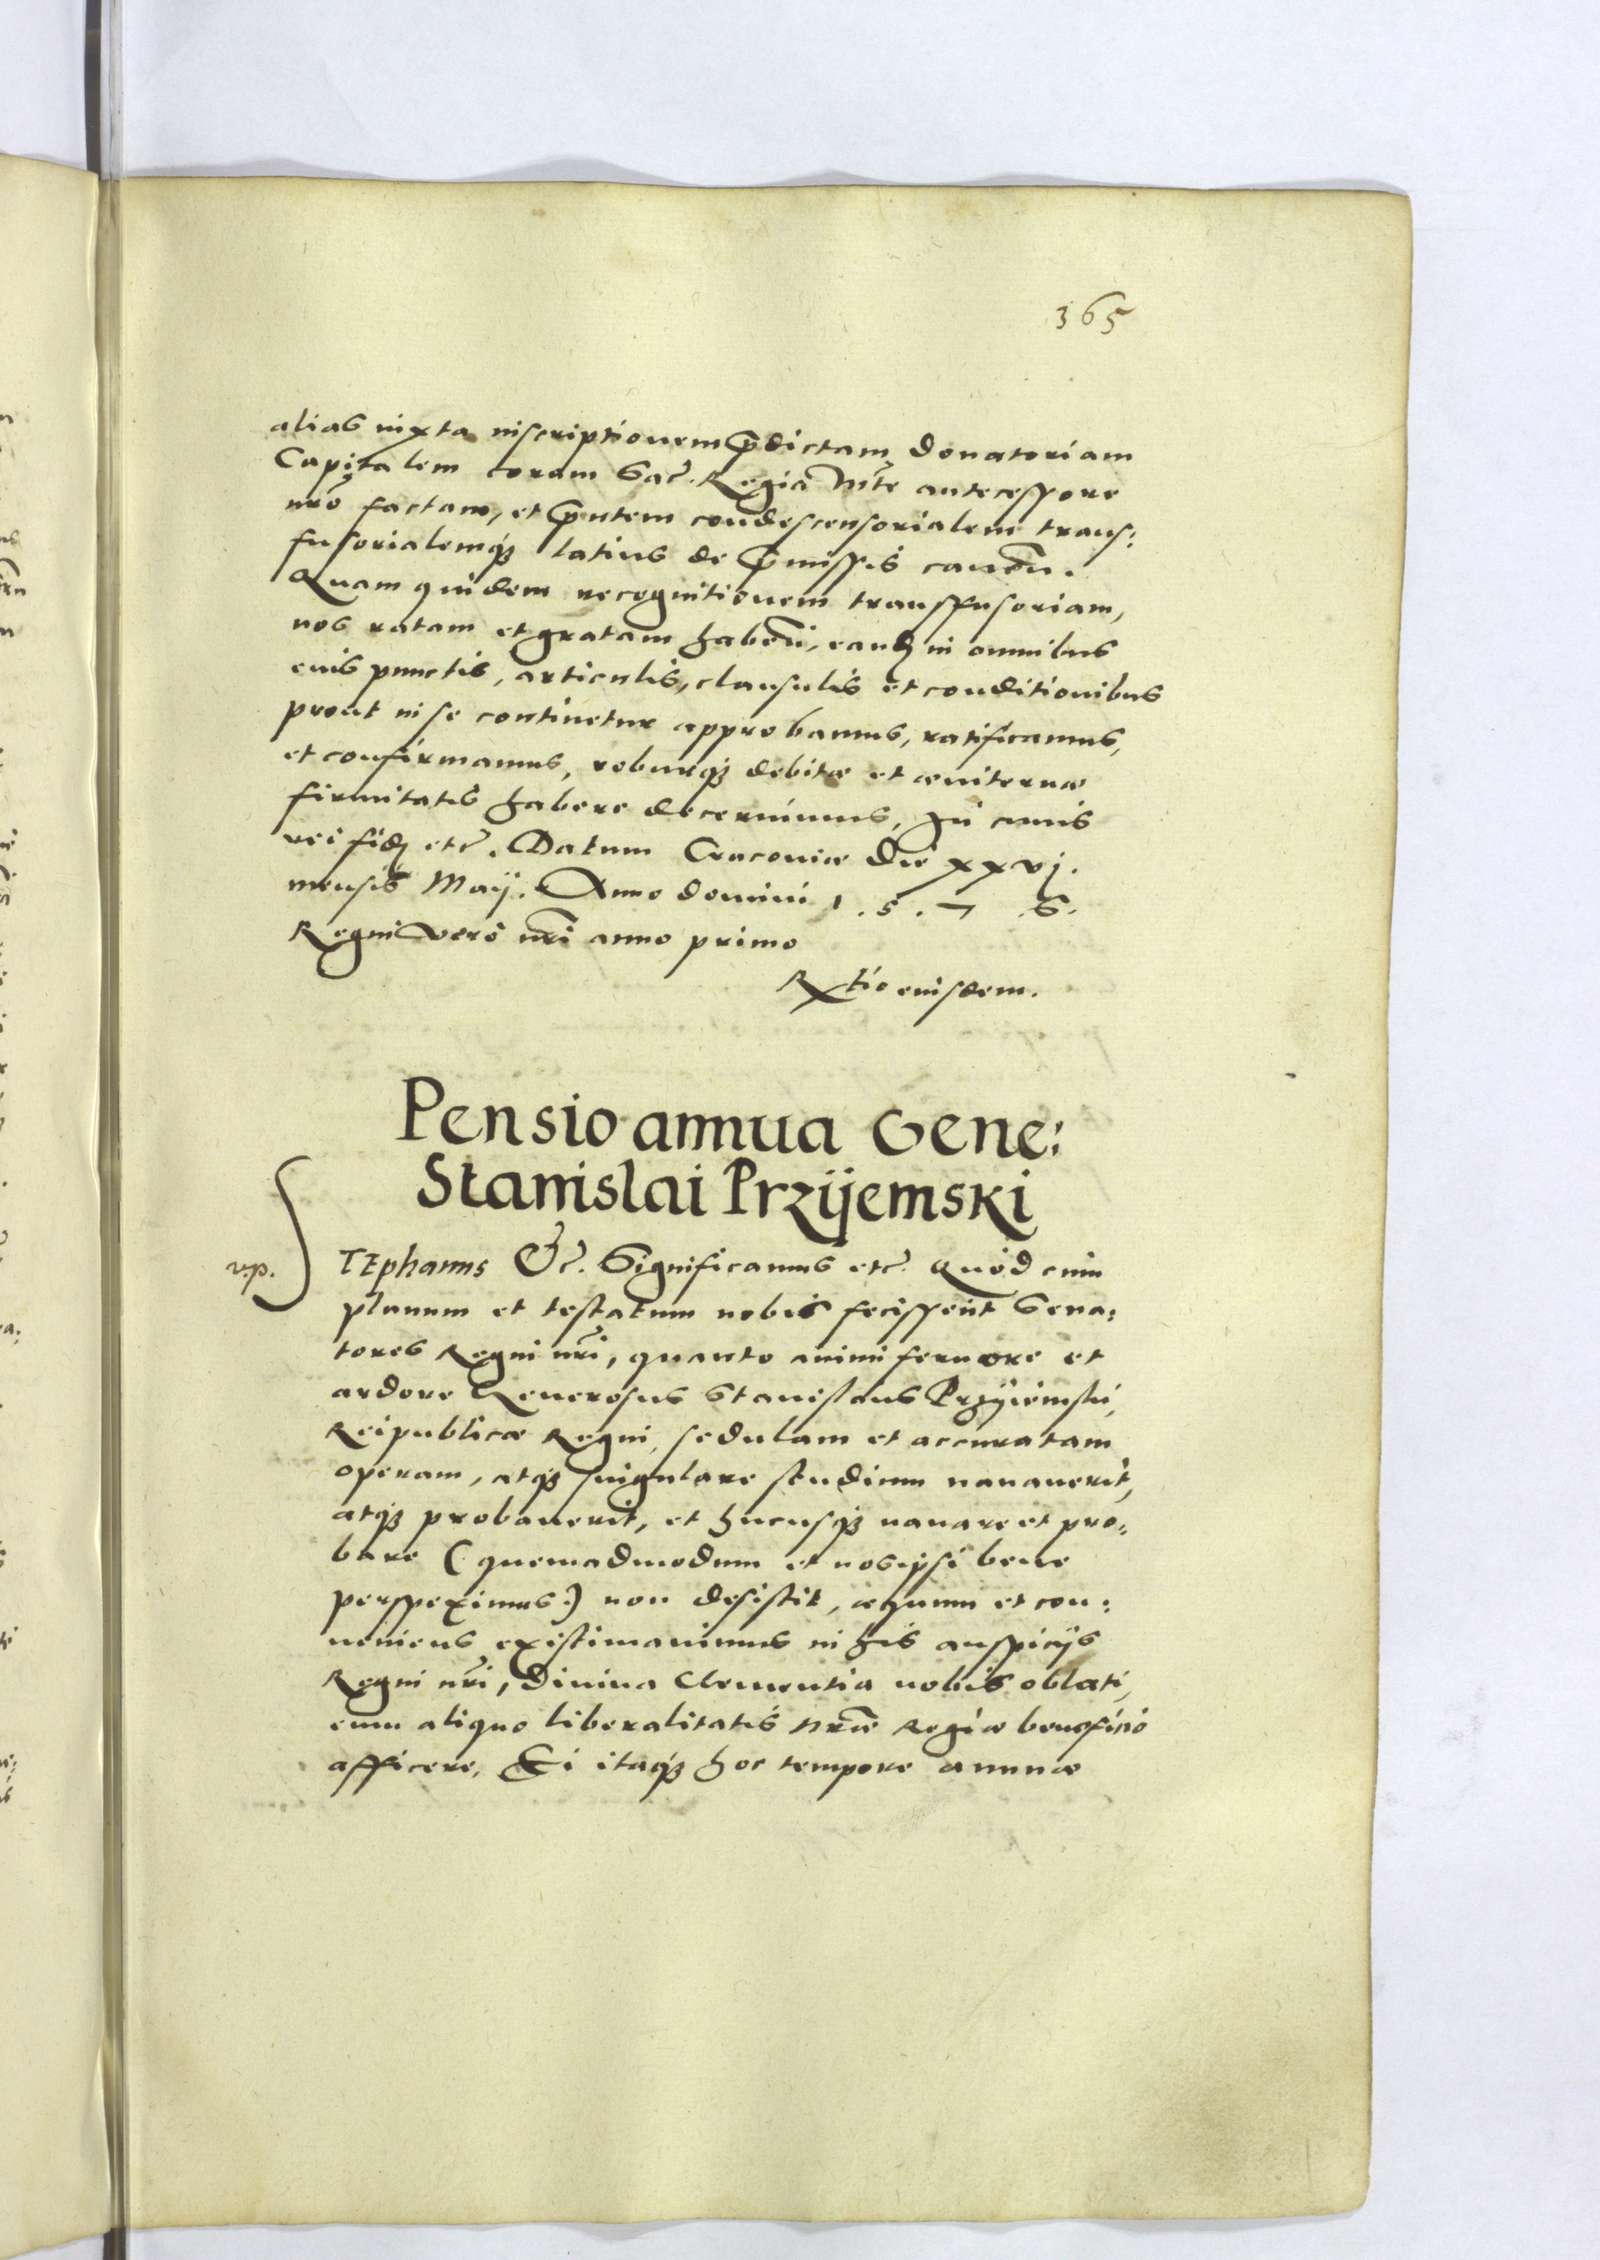 365
alias iuxta inscriptionem p̄dictam donatoriam
Capitalem coram Sac̄. Regia Mt̄e antecessore
nr̄o factam, et p̄ntem condescensorialem trans:
fusorialemq̃ latius de p̄missis caven̄.
Quam quidem recognitionem transfusoriam,
nos ratam et gratam haben̄, eand̄ in omnibus
eius punctis, articulis, clausulis et conditionibus
prout in se continetur approbamus, ratificamus,
et confirmamus, roburq̃ debitæ et æviternæ
firmitatis habere decernimus, In cuius
rei fid̄ etc̄. Datum Cracoviæ Die xxvj.
mensis Maij. Anno domini 1.5.7 6.
Regni vero nr̄i anno primo
Rxtio eiusdem.
Pensio annua Gene:
Stanislai Przÿemski
v.p.
STEphanus &c̄. Significamus etc̄. Quod cum
planum et testatum nobis fecissent Sena:
tores Regni nr̄i, quanto animi fervore et
ardore Generosus Stanislaus Przÿiemski,
Reipublicæ Regni, sedulam et accuratam
operam, atq̃ singulare studium navaverit,
atq̃ probaverit, et hucusq̃ navare et pro:
bare (quemadmodum et nos ipsi bene
perspeximus:) non desistit, æquum et con:
veniens existimavimus in his auspicijs
Regni nr̄i, Divina Clementia nobis oblati,
eum aliquo liberalitatis nr̄æ Regiæ beneficio
afficere, Ei itaq̃ hoc tempore annuæ